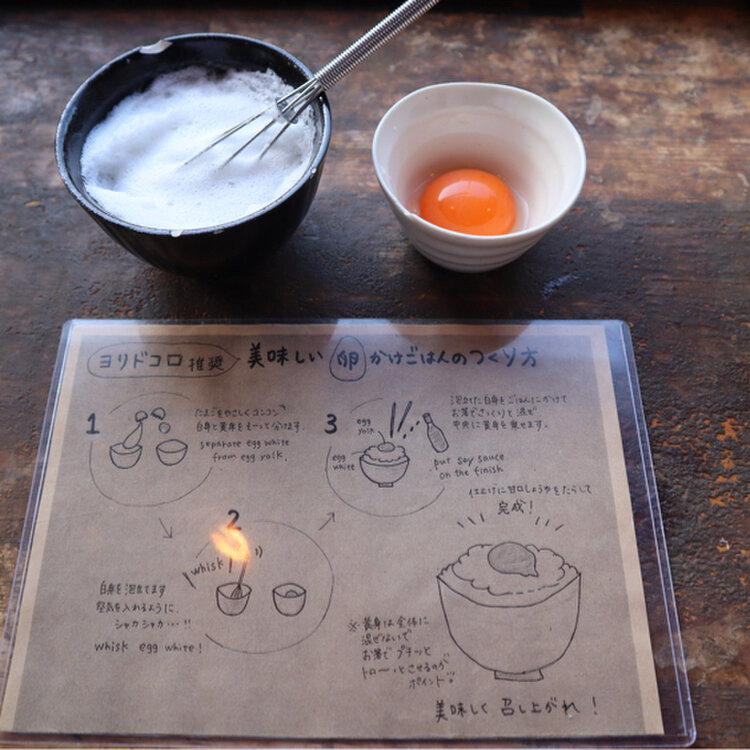 ヨリドコロ推奨 美味しい卵かけごはんのつくり方
1
たまごをやさしくコンコン
白身と黄身をそーっと分けます。
separate egg white
from egg yolk.
2
whisk!
白身を泡立てます
空気を入れるように、
シャカシャカ…!!
whisk egg white!
3
egg
yolk
egg
white
泡立てた白身をごはんにかけて
お箸でさっくりと混ぜ
中央に黄身を乗せます。
put soy sauce
on the finish
仕上げに甘口しょうゆをたらして
完成!
※黄身は全体に
混ぜないで
お箸でプチッと
トローッとさせるのが
ポイント
美味しく召し上がれ!